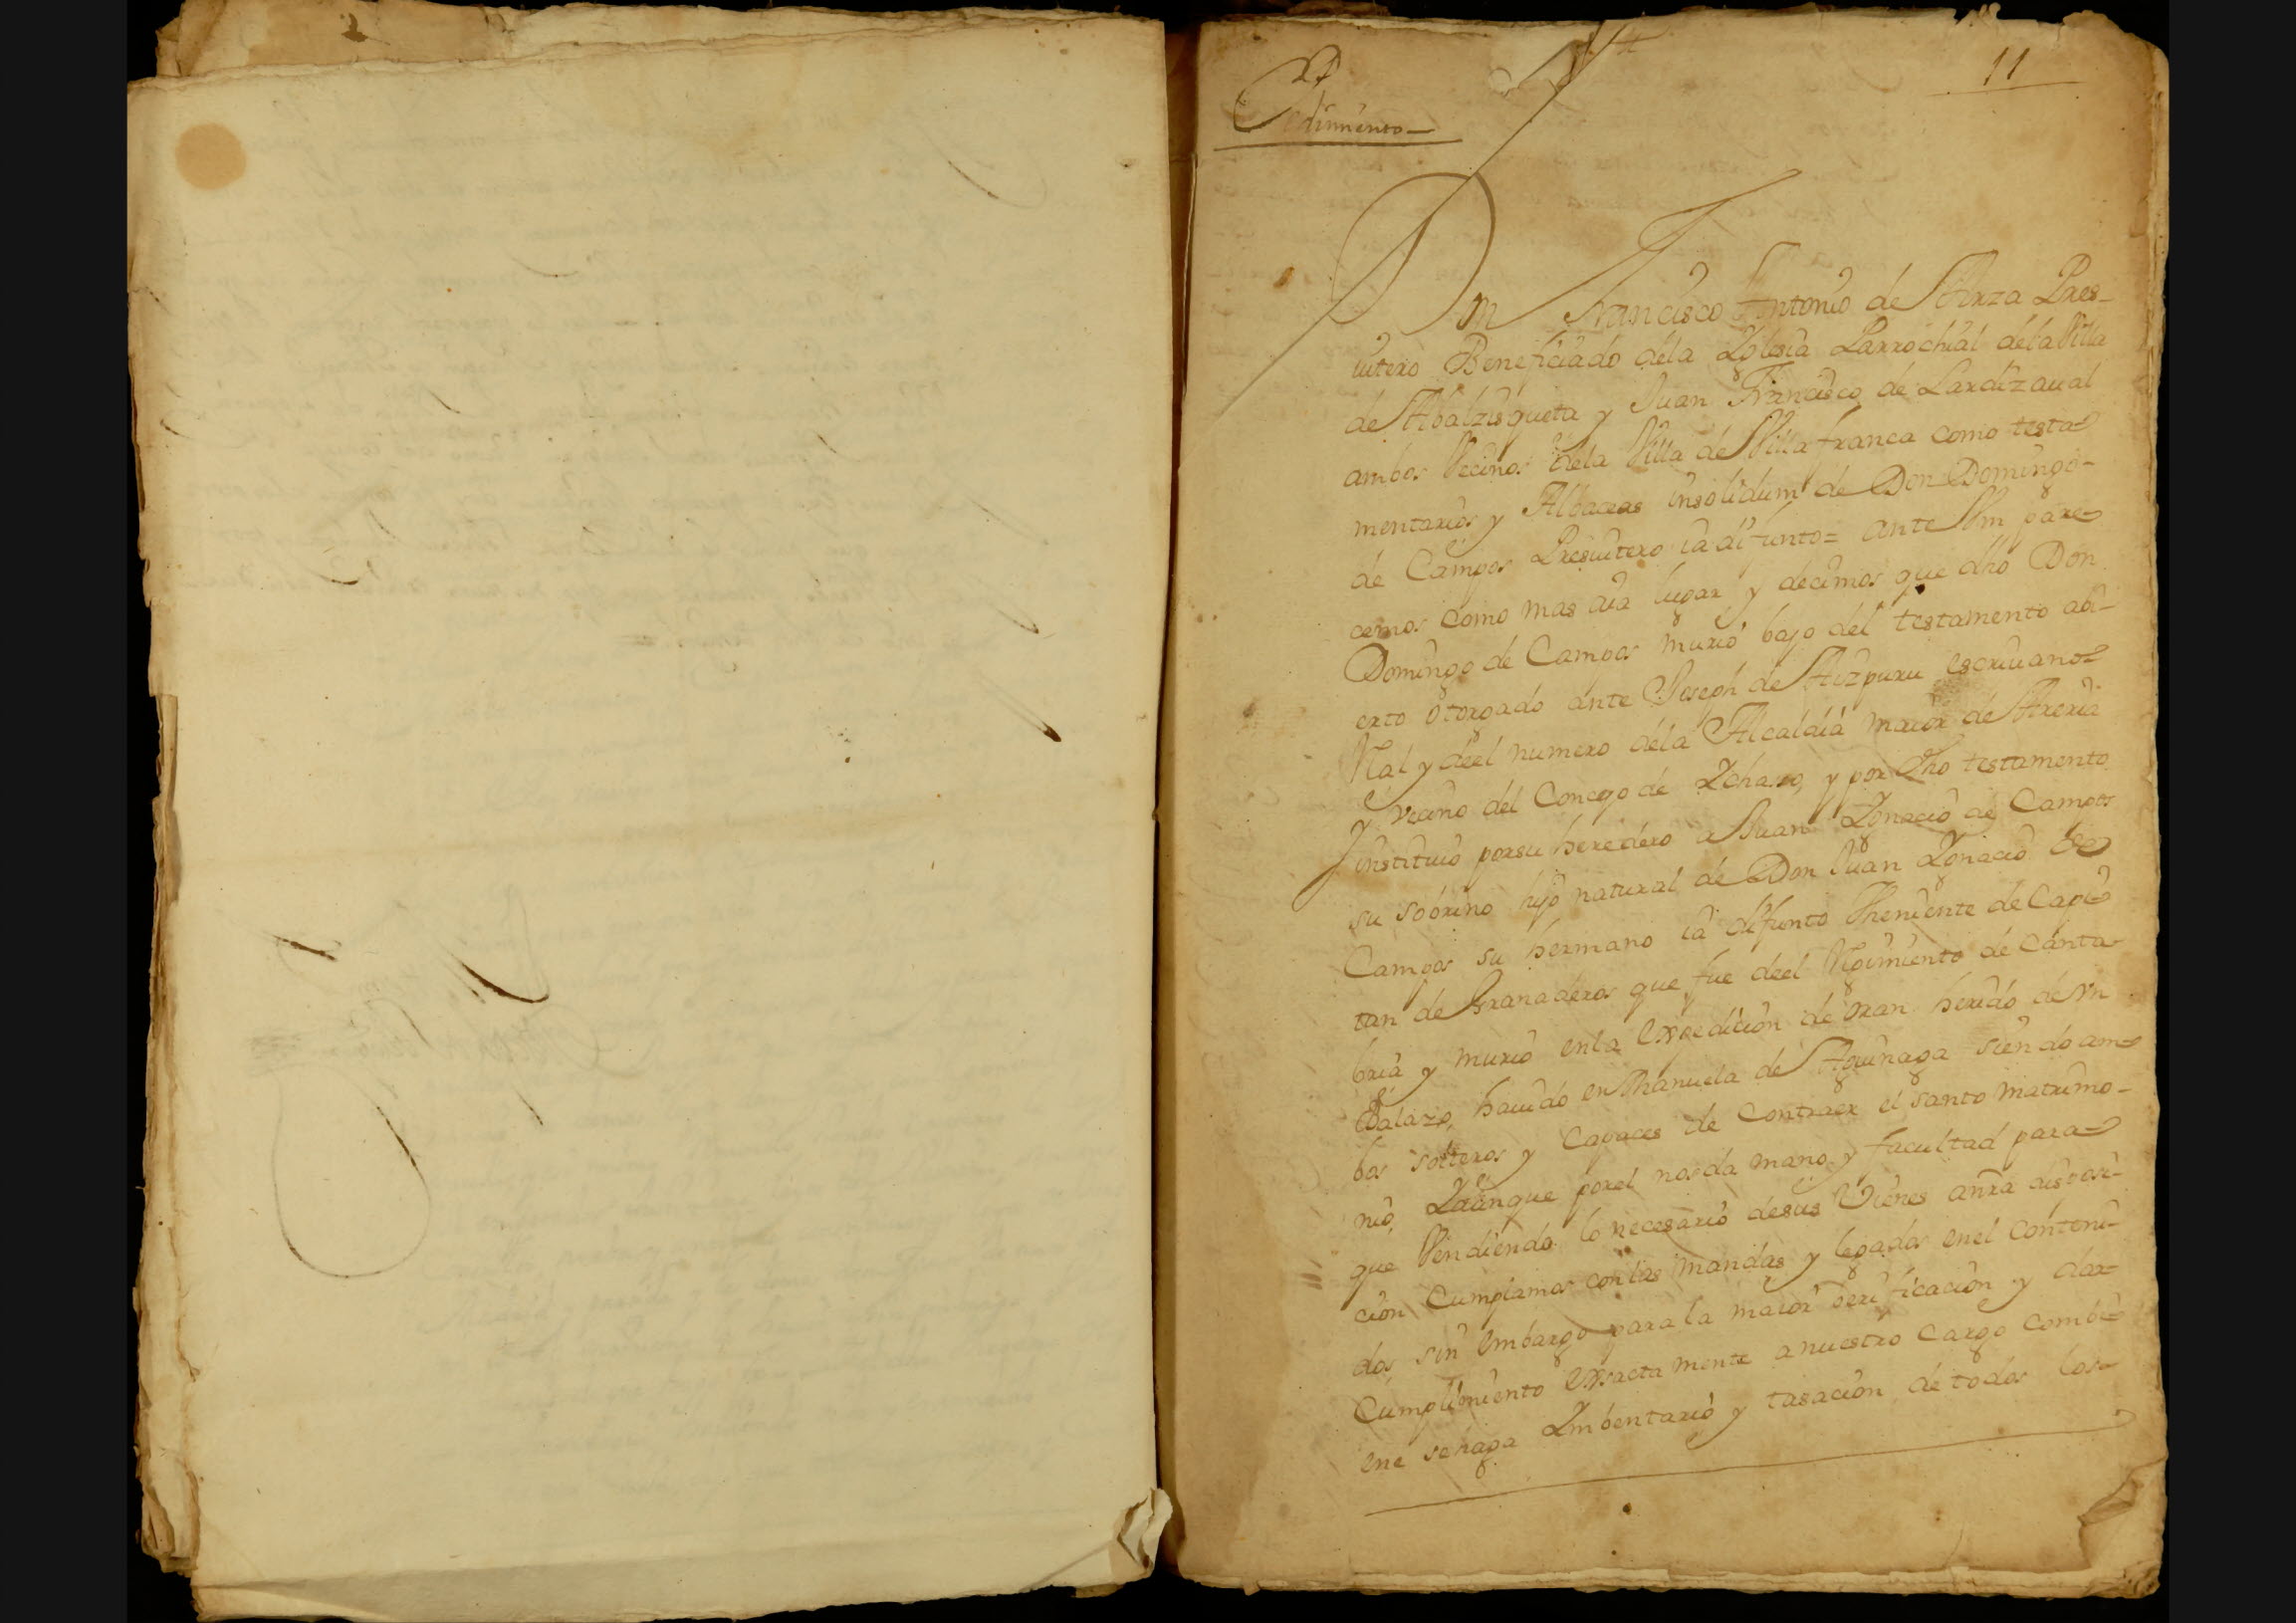 11
Pedimiento
Dn Francisco Antonio de Arza Pres-
uitero Beneficiado dela Yglesia Parrochial dela Villa
de Abalzisqueta y Juan Francisco de Lardizaual
ambos Vecinos dela Villa de Villafranca como testa-
mentarios y Albaceas insolidum de Don Domingo-
de Campos Presuitero ia difunto= ante Vm pare-
cemos como mas aia lugar y decimos que dho Don
Domingo de Campos murió bajo del testamento abi-
erto otorgado ante Joseph de Aizpuru escriuano
Ral y deel numero dela Alcaldia maior de Areria
y vecino del Concejo de Ychaso, y por dho testamento
instituio porsu heredero a Juan Ygnacio de Campos
su sobrino hijo natural de Don Juan Ygnacio de
Campos su hermano ia difunto Theniente de Capi-
tan de Granaderos que fue deel Regimiento de Canta-
bria y murio enla expedicion de Oran herido de Vn
Balazo, hauido en Manuela de Aguinaga siendo am-
bos solteros y Capaces de Contraer el santo matrimo-
nio, Yaunque porel nos da mano y facultad para
que Vendiendo lo necesario desus Vienes anra disposi-
cion Cumplamos conlas mandas y legados enel Conteni-
dos, sin embargo para la maior berificacion y dar
Cumplimiento exsactamente a nuestro Cargo Combi-
ene sehaga Ymbentario y tasacion de todos los